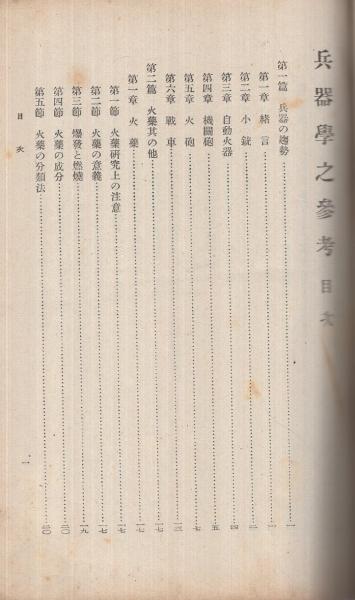 兵器學之參考目次
第一篇 兵器の趨勢……一
第一章 緒言……一
第二章 小銃……二
第三章 自動火器……四
第四章 機關砲……五
第五章 火砲……七
第六章 戰車……一三
第二篇 火藥其の他……一七
第一章 火藥……一七
第一節 火藥硏究上の注意……一七
第二節 火藥の意義……一七
第三節 爆發と燃燒……一九
第四節 火藥の成分……二〇
第五節 火藥の分類法……二〇
目次 一